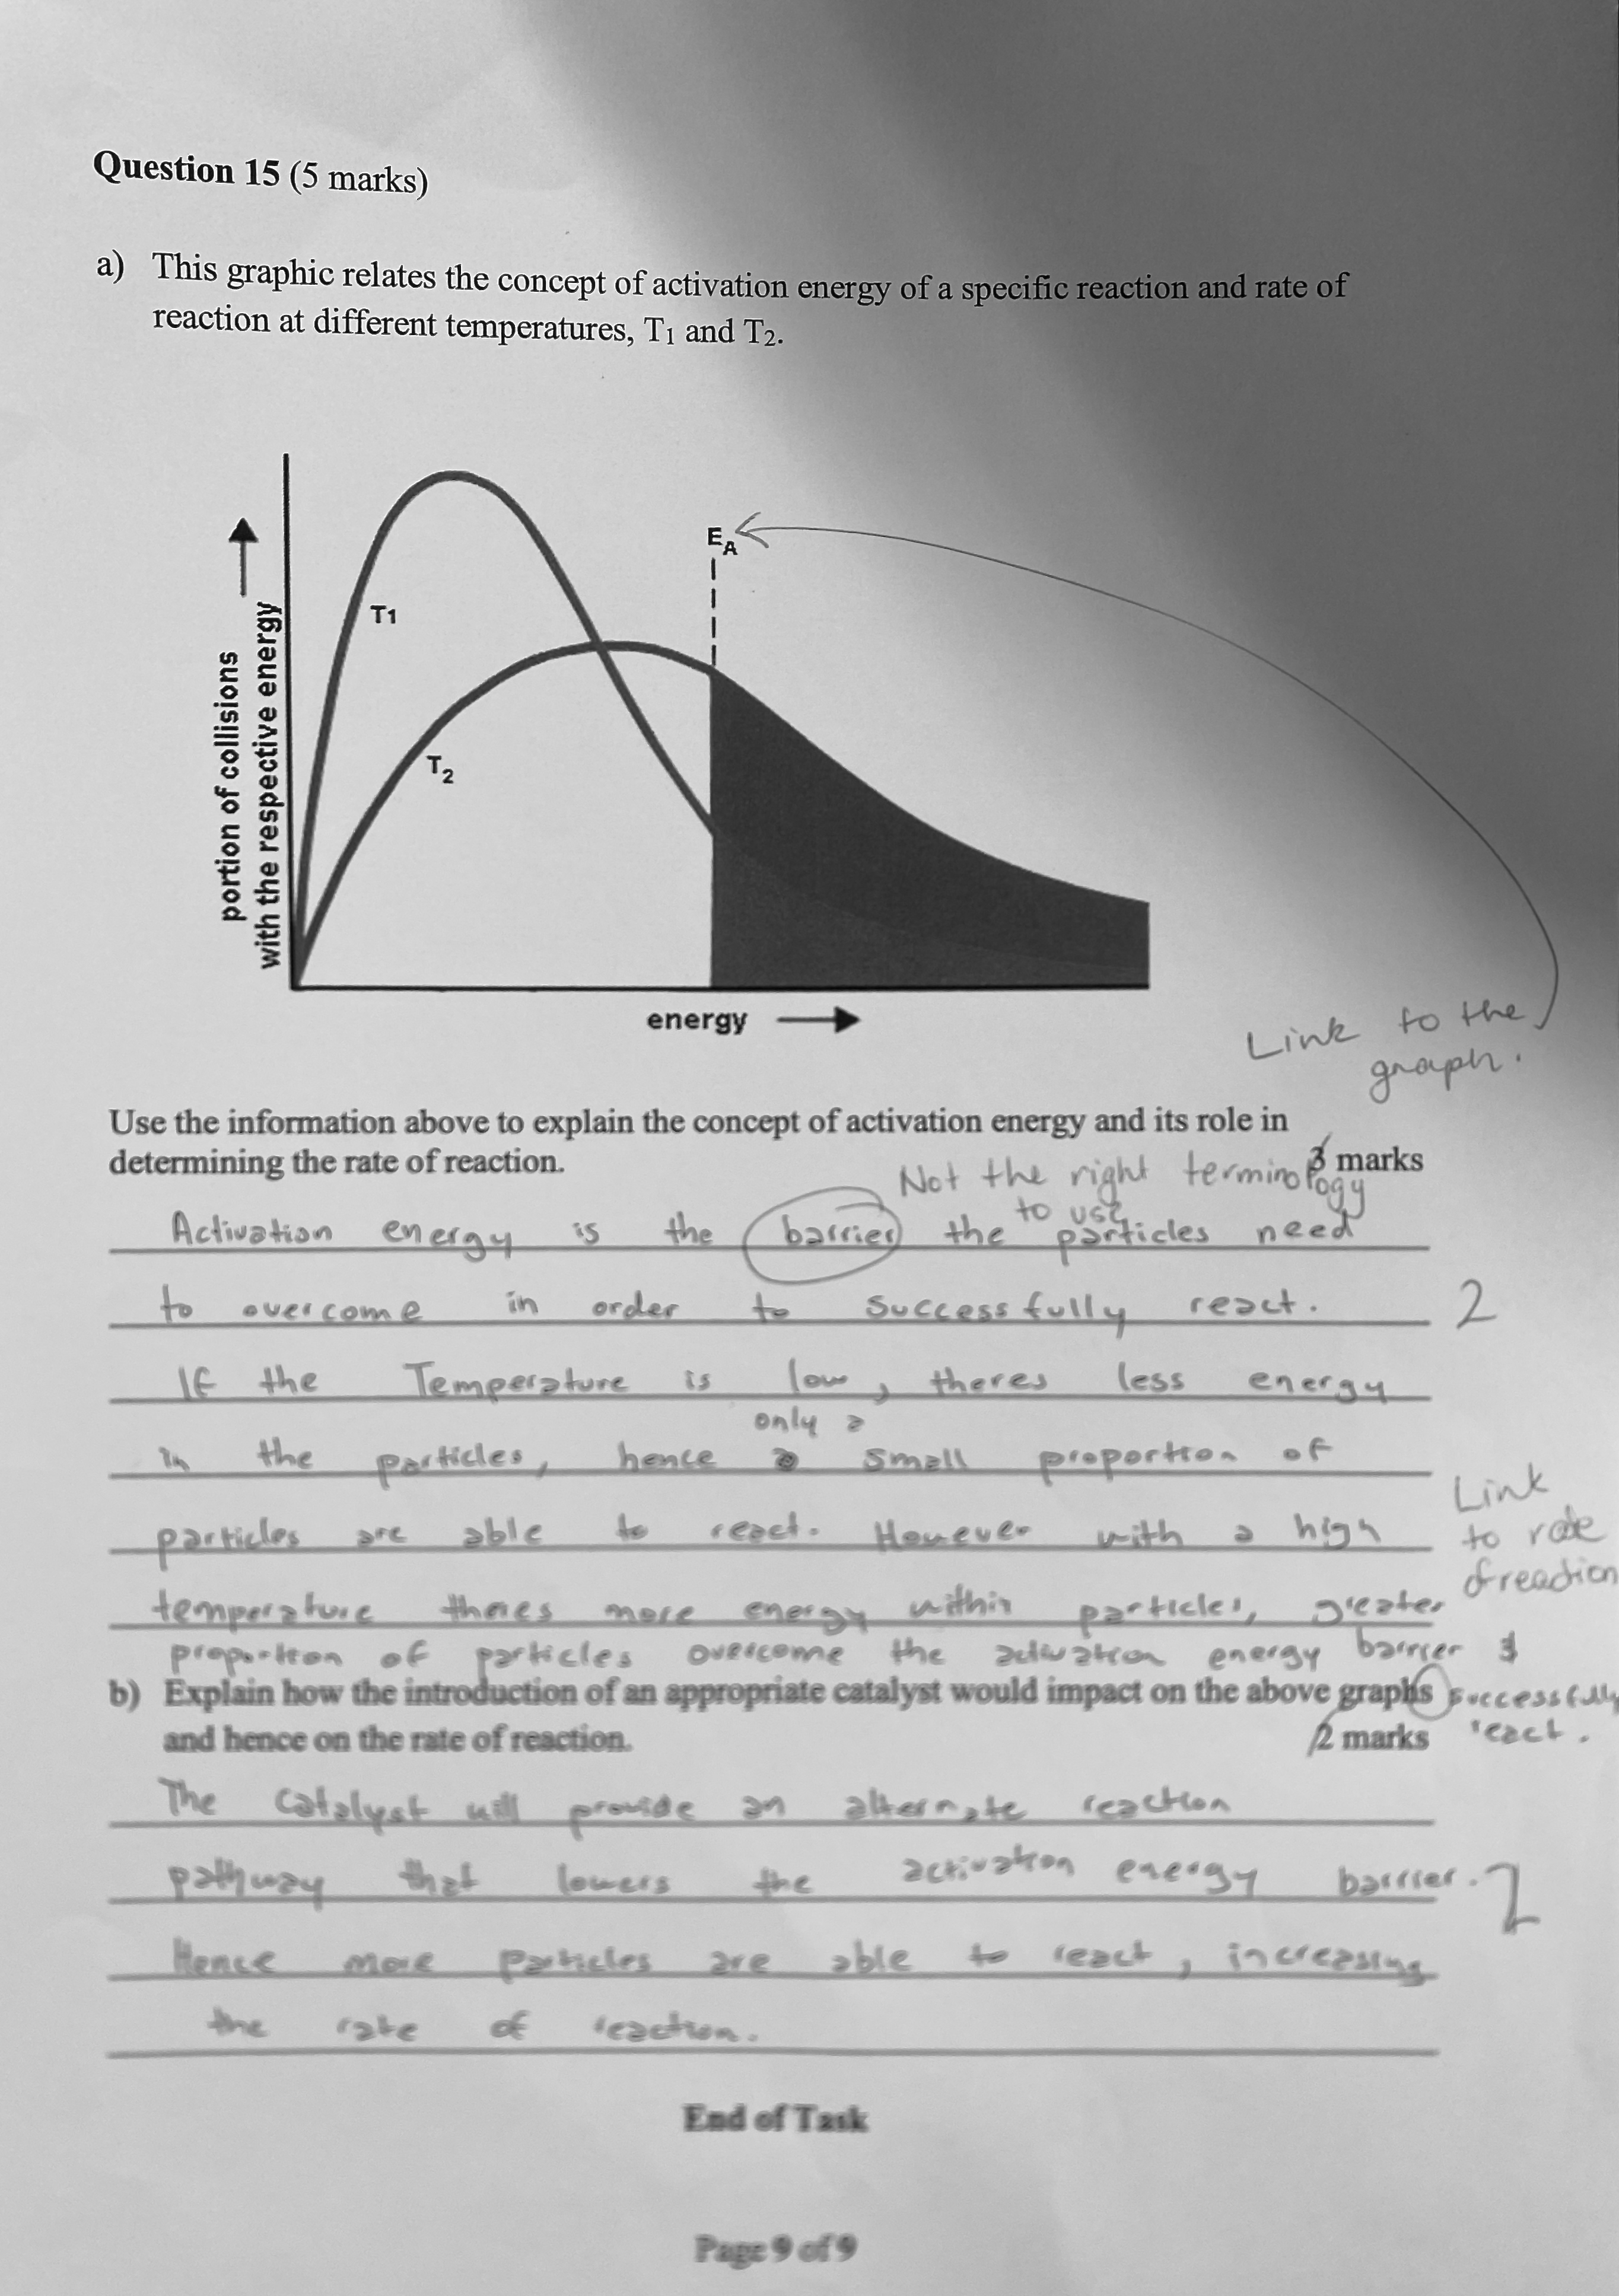 Question 15 (5 marks)
a) This graphic relates the concept of activation energy of a specific reaction and rate of
reaction at different temperatures, T1 and T2.
EA
T1
T2
portion of collisions
with the respective energy
energy
Link to the
graph.
Use the information above to explain the concept of activation energy and its role in
determining the rate of reaction.
3 marks
Not the right terminology
to use
Activation energy is the barrier the particles need
to overcome in order to successfully react.
2
If the Temperature is low, theres less energy
only a
in the particles, hence a small proportion of
particles are able to react. However with a high
Link
to rate
of reaction
temperature theres more energy within particles, greater
proportion of particles overcome the activation energy barrier &
successfully
react.
b) Explain how the introduction of an appropriate catalyst would impact on the above graphs
and hence on the rate of reaction.
2 marks
The catalyst will provide an alternate reaction
pathway that lowers the activation energy barrier.
2
Hence more particles are able to react, increasing
the rate of reaction.
End of Task
Page 9 of 9